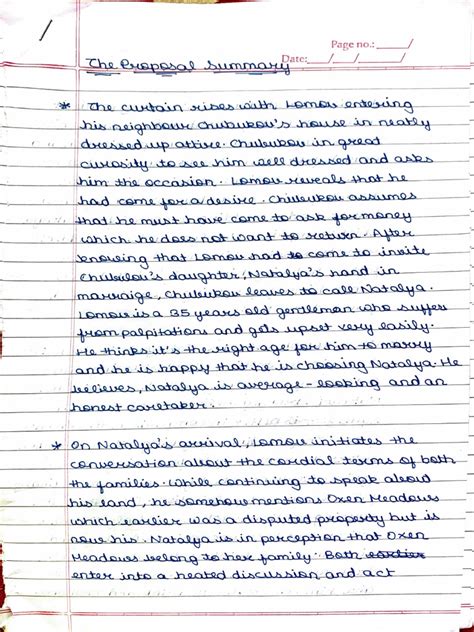 Page no.:
The Proposal Summary Date: / /
* The curtain rises with Lomov entering
his neighbour Chubukov's house in neatly
dressed up attire. Chubukov in great
curiosity to see him well dressed and asks
him the occasion. Lomov reveals that he
had come for a desire. Chubukov assumes
that he must have come to ask for money
which he does not want to return. After
knowing that Lomov had to come to invite
Chubukov's daughter, Natalya's hand in
marraige, Chubukov leaves to call Natalya.
Lomov is a 35 years old gentleman who suffers
from palpitations and gets upset very easily.
He thinks it's the right age for him to marry
and he is happy that he is choosing Natalya. He
believes, Natalya is average-looking and an
honest caretaker.
* On Natalya's arrival, Lomov initiates the
conversation about the cordial terms of both
the families. While continuing to speak about
his land, he somehow mentions Oxen Meadows
which earlier was a disputed property but is
now his. Natalya is in perception that Oxen
Meadows belong to her family. Both earlier
enter into a heated discussion and act